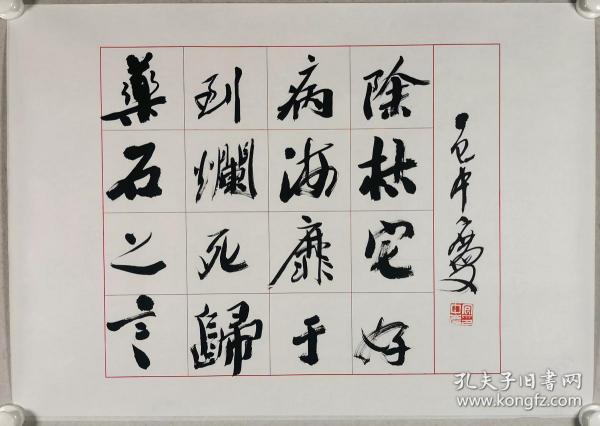 藥到病除
石爛海枯
之死靡它
言歸于好
包中慶
孔夫子旧书网
www.kongfz.com